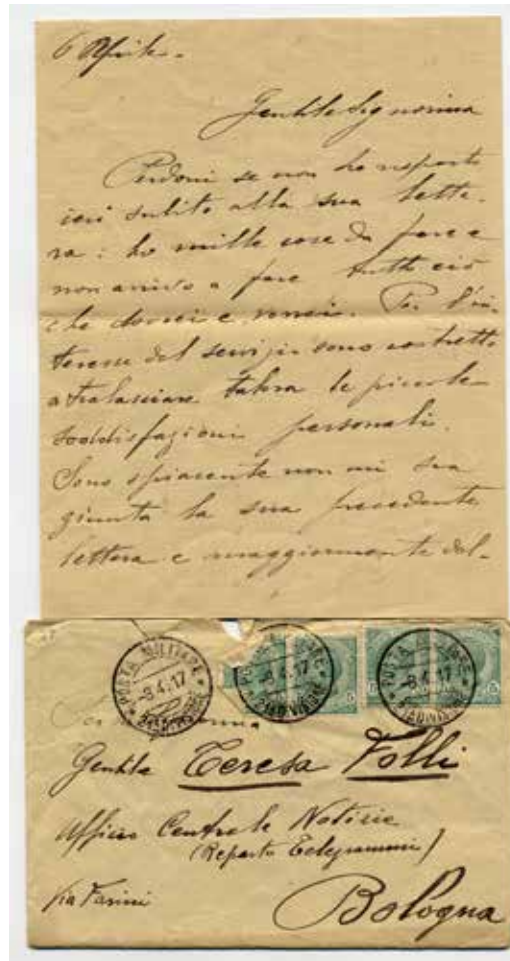 6 Aprile.
Gentile Signorina
Perdoni se non ho risposto
ieri subito alla sua lette-
ra: ho mille cose da fare e
non arrivo a fare tutto ciò
che dovrei e vorrei. Per l'in-
teresse del servizio sono costretto
a tralasciare talora le piccole
soddisfazioni personali.
Sono spiacente non mi sia
giunta la sua precedente
lettera e maggiormente del-
POSTA MILITARE
-8.4.17
DIVISIONE
POSTA MILITARE
-8.4.17
DIVISIONE
POSTA MILITARE
-8.4.17
DIVISIONE
Gentile Teresa Folli
Ufficio Centrale Notizie
(Reparto Telegrammi)
Via Farini
Bologna